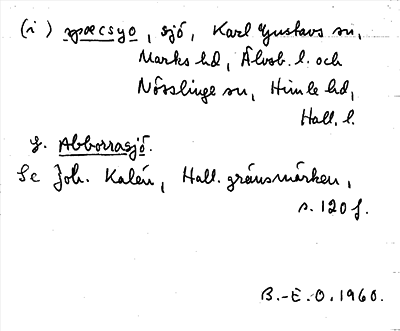 (i) spæcsyo, sjö, Karl Gustavs sn,
Marks hd, Älvsb. l. och
Nösslinge sn, Himle hd,
Hall. l.
J. Abborrasjö.
Se Joh. Kalén, Hall. gränsmärken,
s. 120 f.
B.-E. O. 1960.